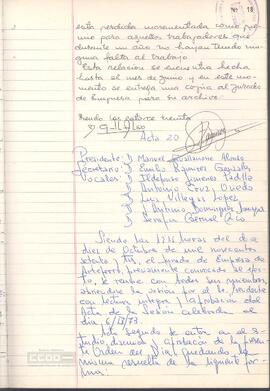 Nº 18
esta perdida incrementada como pre
mio para aquellos trabajadores que
durante un año no hayan tenido nin
guna falta al trabajo.
Esta relacion se encuentra hecha
hasta el mes de junio y en este mo
mento se entrega una copia al jurado
de Empresa para su archivo.
Siendo las catorce treinta
Acta 20
Presidente: D. Manuel Alonso
Secretario: D. Emilio Ramirez Gonzalez
Vocales: D. Ildefonso Jimenez Padilla
D. Antonio Cruz Oviedo
D. Luis Villegas Lopez
D. Antonio Dominguez
D. Serafin Bernal Rico
Siendo las horas del dia
diez de Octubre de mil novecientos
setenta y tres, el Jurado de Empresa de
previamente convocado al efec
to, se reunen con todos sus presentes
abriendose la sesion por el Sr. Presidente
con lectura integra y aprobacion del
Acta de la Sesion celebrada el
dia 6/13/73
Acto seguido se entra en el es
tudio, discusion y aprobacion de la presen
te Orden del Dia quedando la
misma resuelta de la siguiente for
ma:
CCOO